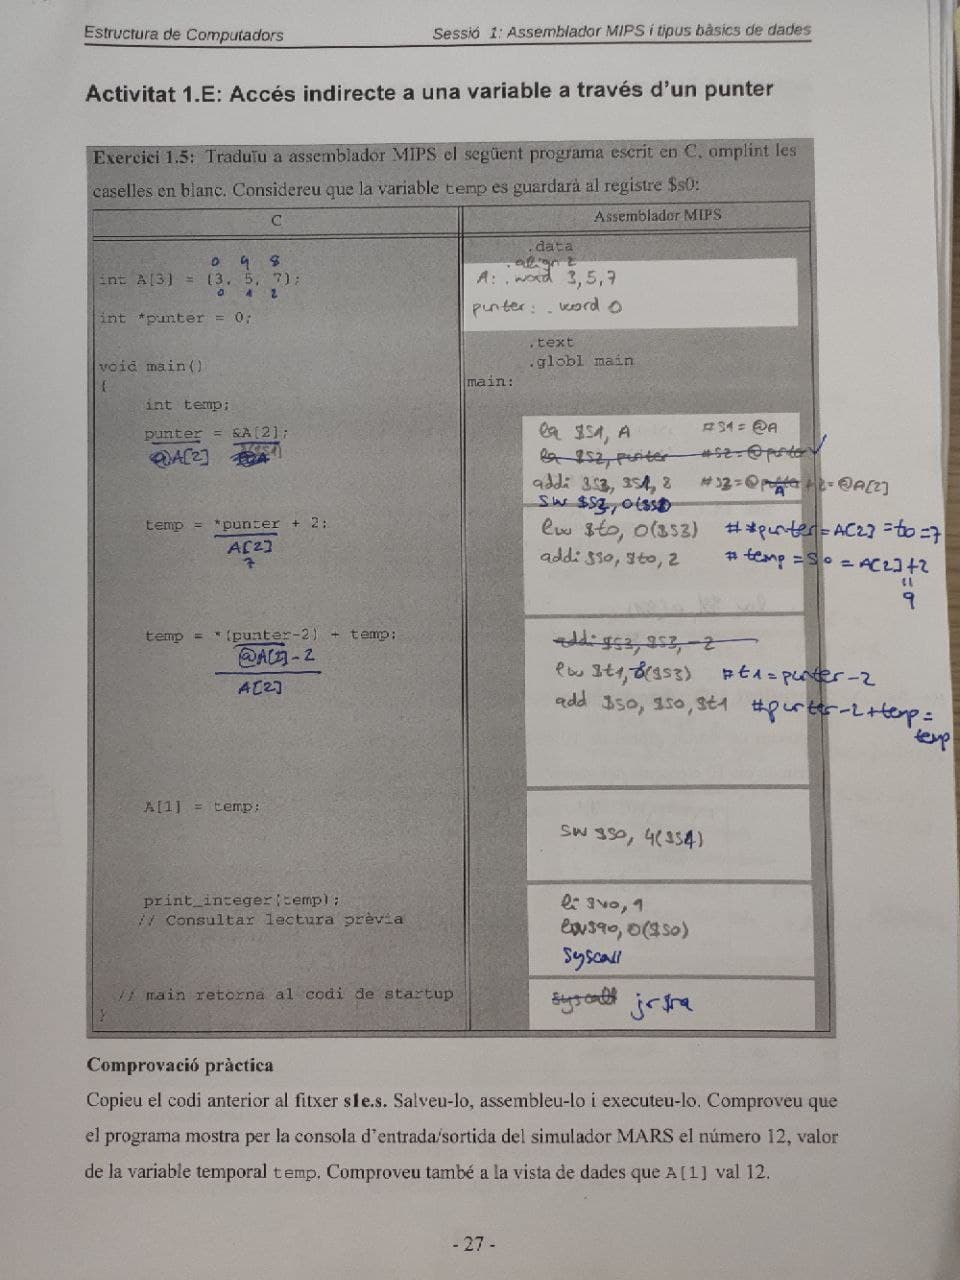 Estructura de Computadors
Sessió 1: Assemblador MIPS i tipus bàsics de dades
Activitat 1.E: Accés indirecte a una variable a través d'un punter
Exercici 1.5: Traduïu a assemblador MIPS el següent programa escrit en C, omplint les
caselles en blanc. Considereu que la variable temp es guardarà al registre $s0:
C
Assemblador MIPS
.data
.align 2
0 4 8
int A[3] = {3, 5, 7};
A: .word 3,5,7
0 1 2
int *punter = 0;
punter: .word 0
.text
.globl main
void main()
{
main:
int temp;
punter = &A[2];
la $s1, A #s1=@A
@A[2]
la $s2, punter #s2=@punter
addi $s3, $s1, 8
=@A[2]
sw $s3,
temp = *punter + 2;
lw $t0, 0($s3) # *punter=A[2]=t0=7
A[2]
7
addi $s0, $t0, 2 # temp=s0=A[2]+2
"
9
temp = *(punter-2) + temp;
addi $s3, $s3, -2
@A[2]-2
($s3) #t1=punter-2
A[2]
add $s0, $s0, $t1 #punter-2+temp=
temp
A[1] = temp;
sw $s0, 4($s1)
print_integer(temp);
li $v0, 1
// Consultar lectura prèvia
0($s0)
syscall
// main retorna al codi de startup
syscall jr $ra
}
Comprovació pràctica
Copieu el codi anterior al fitxer s1e.s. Salveu-lo, assembleu-lo i executeu-lo. Comproveu que
el programa mostra per la consola d'entrada/sortida del simulador MARS el número 12, valor
de la variable temporal temp. Comproveu també a la vista de dades que A[1] val 12.
- 27 -